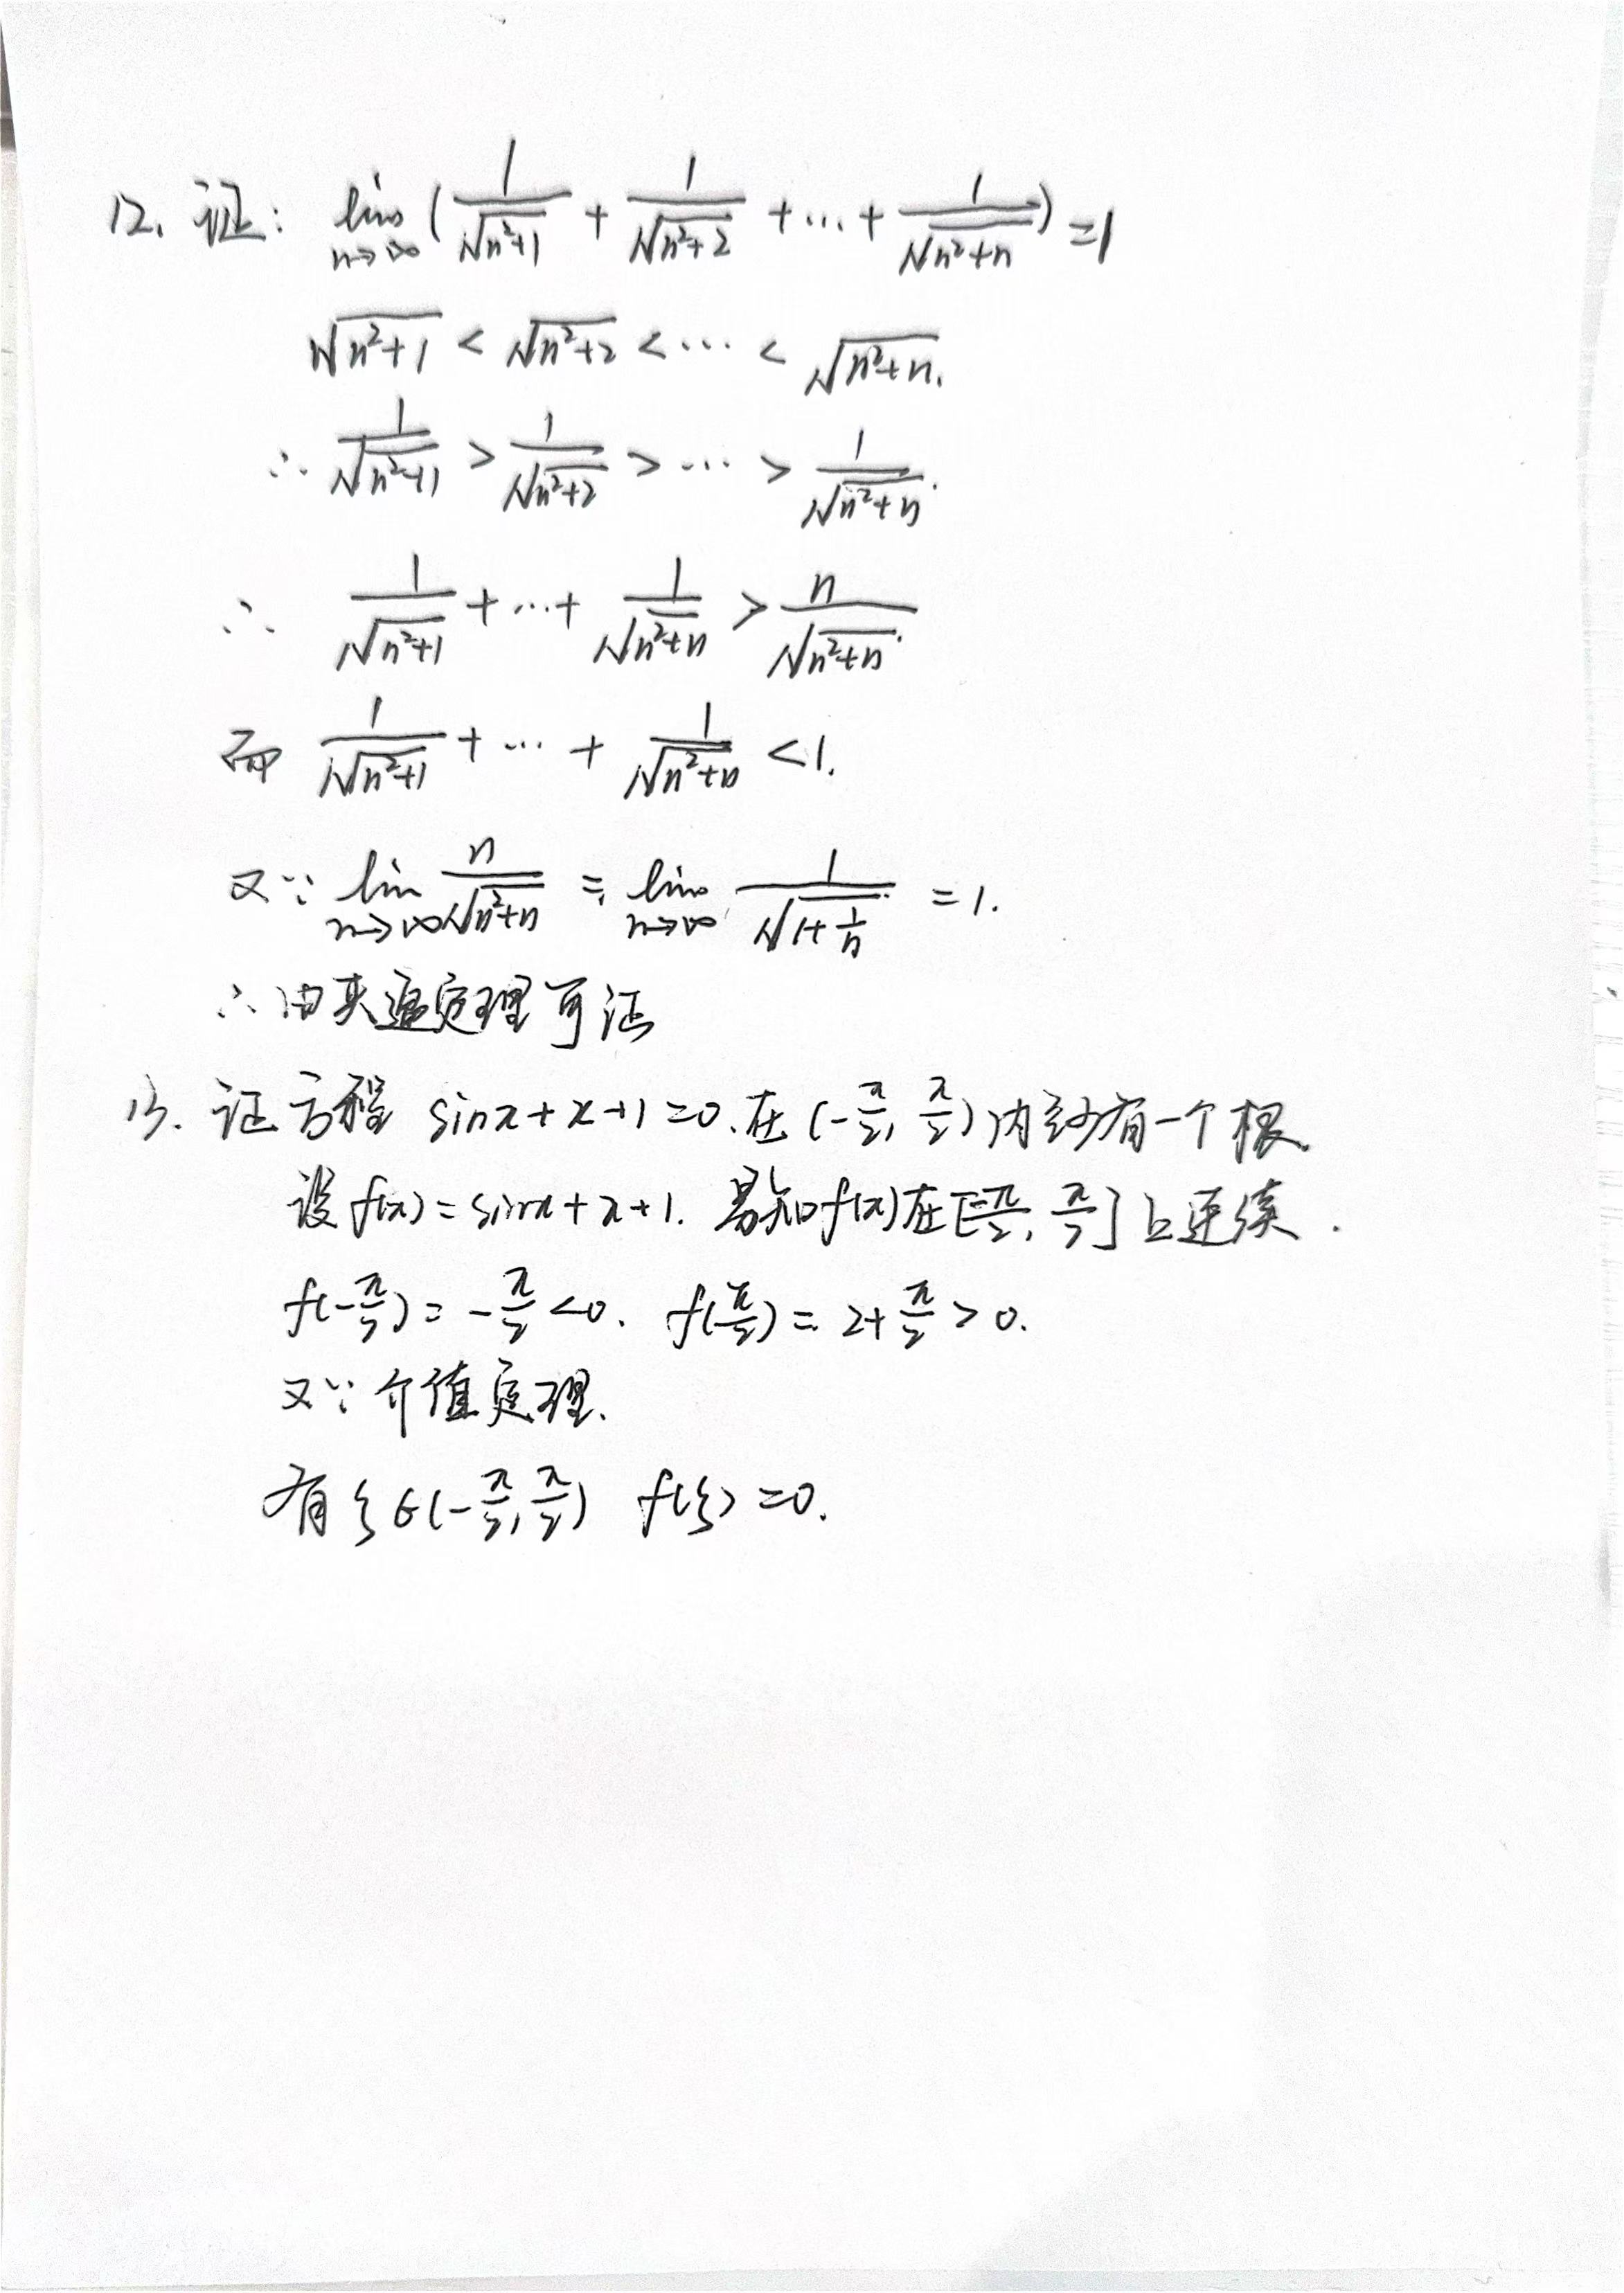 12. 证: lim n→∞ (1/√(n²+1) + 1/√(n²+2) + … + 1/√(n²+n)) = 1
√(n²+1) < √(n²+2) < … < √(n²+n).
∴ 1/√(n²+1) > 1/√(n²+2) > … > 1/√(n²+n).
∴ 1/√(n²+1) + … + 1/√(n²+n) > n/√(n²+n).
而 1/√(n²+1) + … + 1/√(n²+n) < 1.
又∵ lim n→∞ n/√(n²+n) = lim n→∞ 1/√(1+1/n) = 1.
∴ 由夹逼定理可证
13. 证方程 sinx+x+1=0.在(-π/2, π/2)内至少有一个根.
设f(x)=sinx+x+1. 易知f(x)在[-π/2, π/2]上连续.
f(-π/2)=-π/2<0. f(π/2)=2+π/2>0.
又∵介值定理.
有ξ∈(-π/2, π/2) f(ξ)=0.